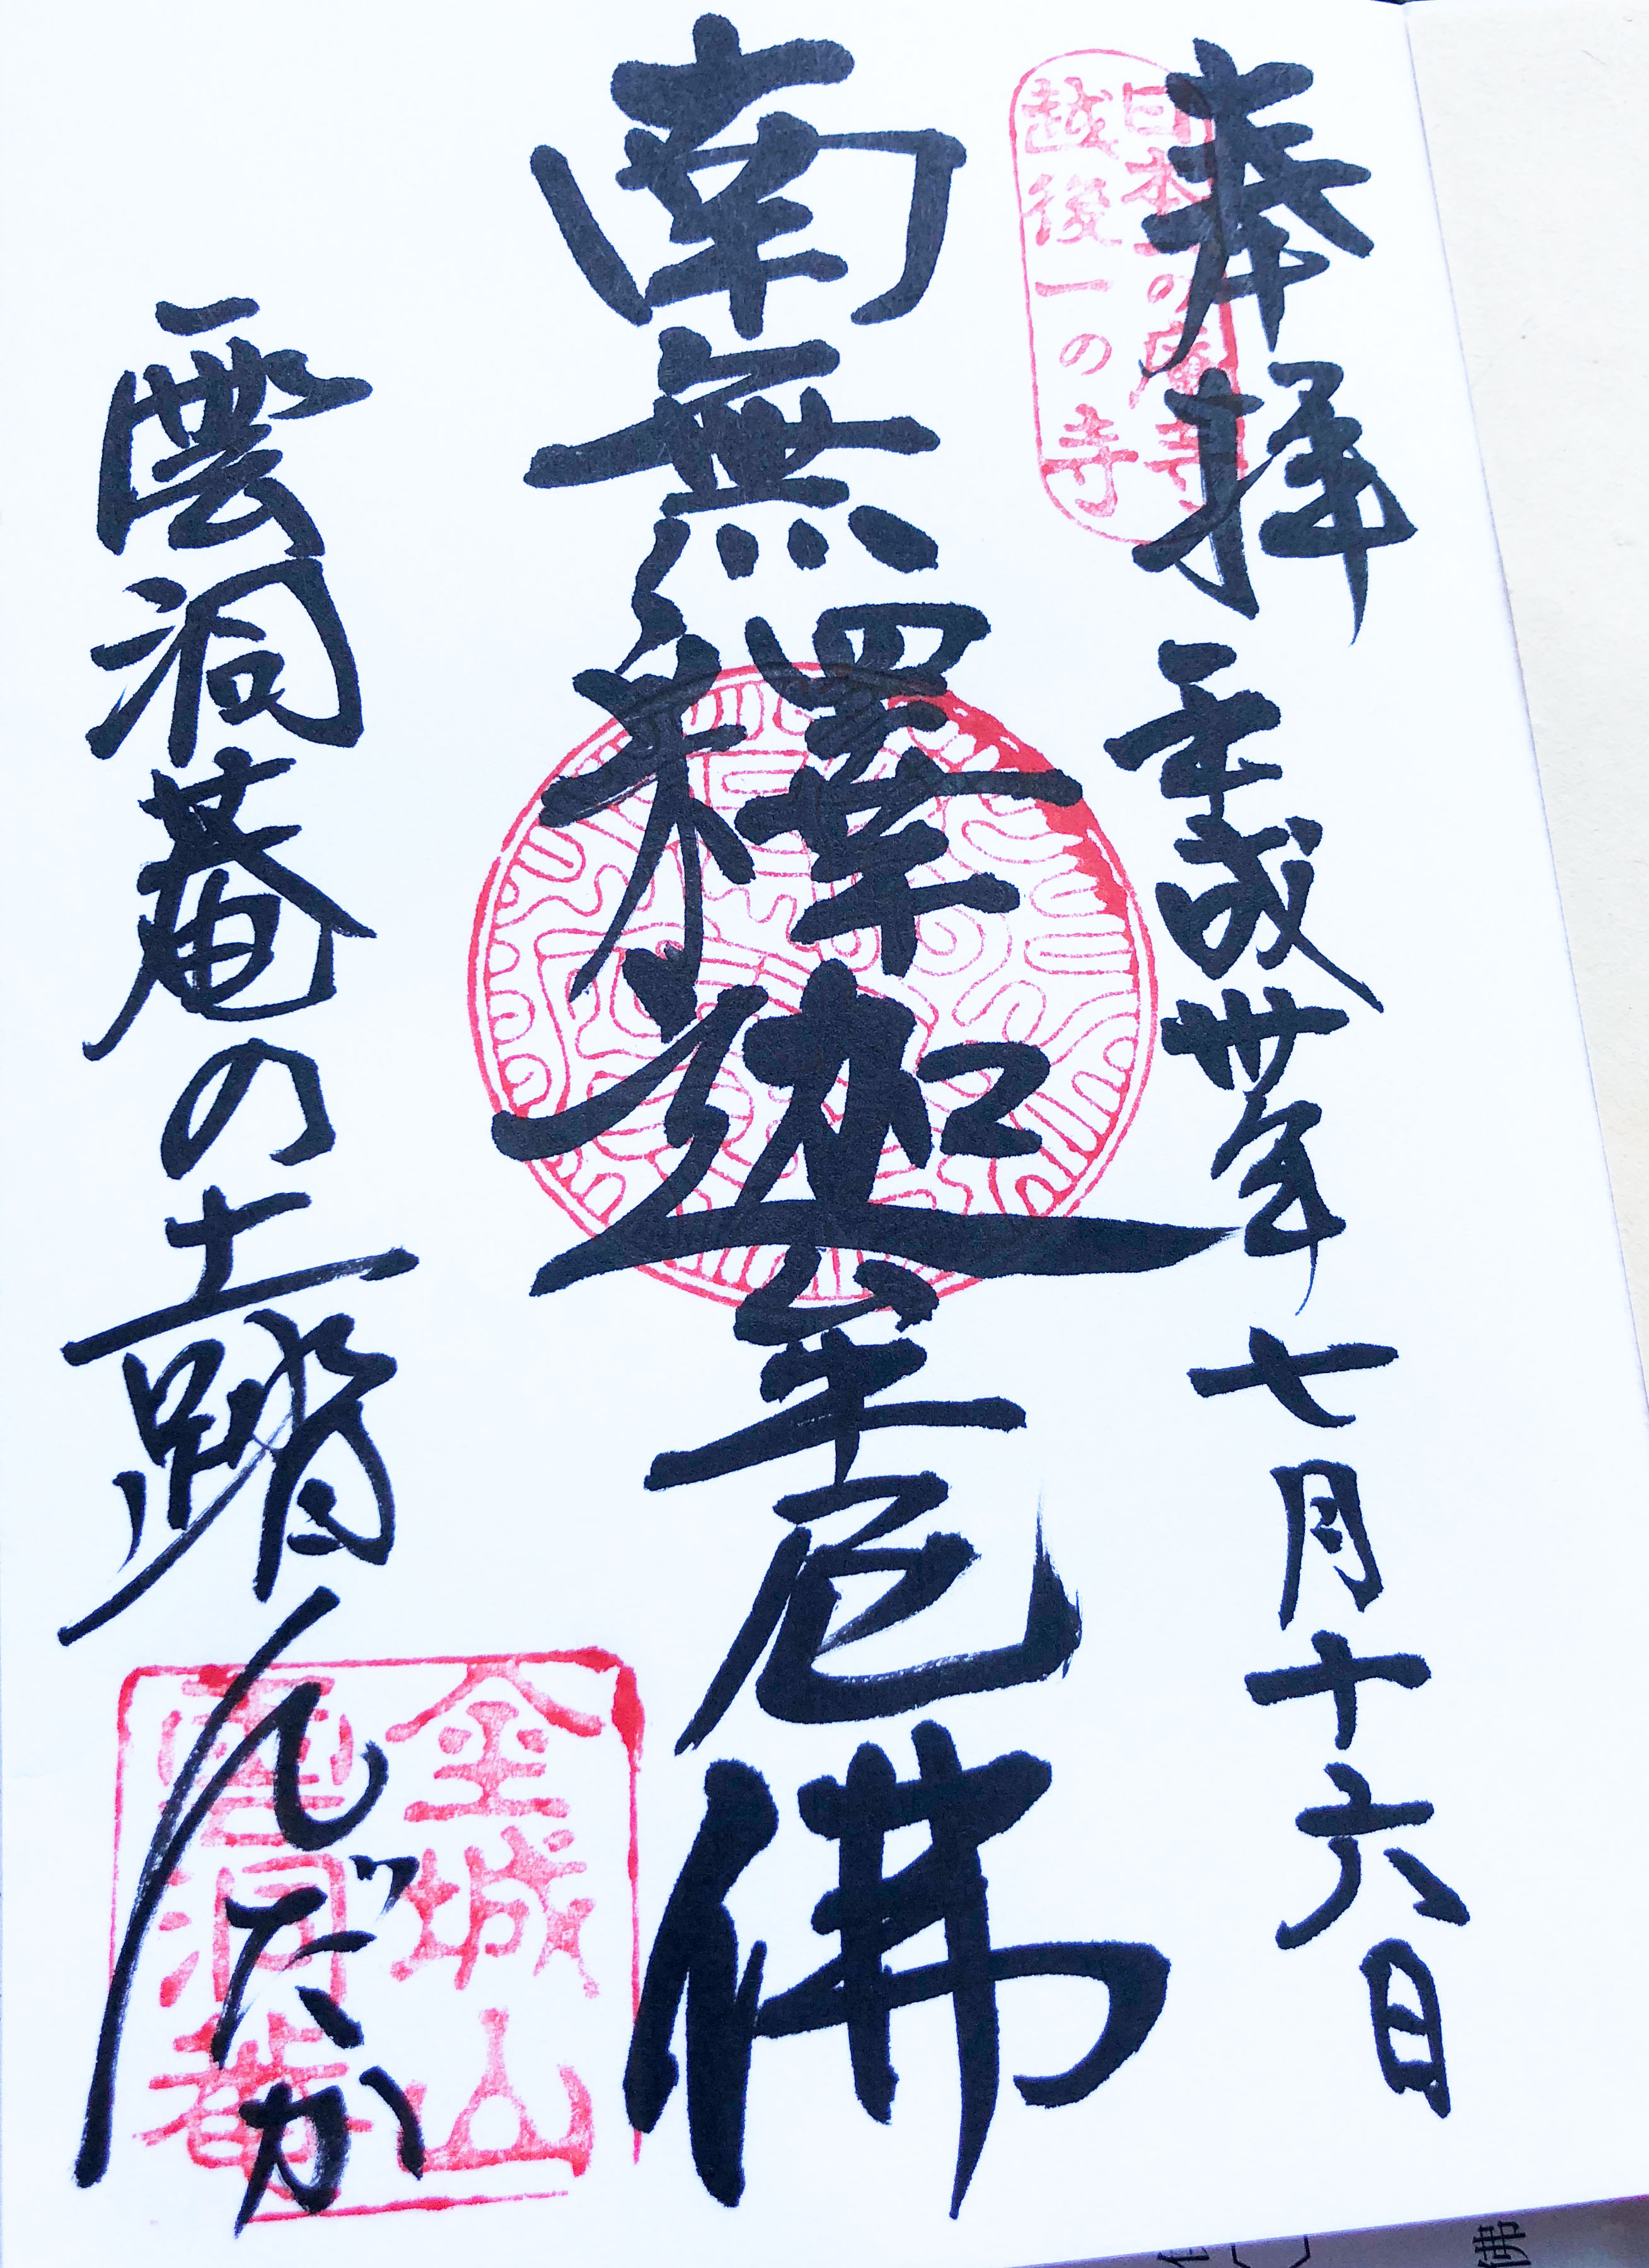 奉拜 平成卅年七月十六日
日本一の庵寺
越後一の寺
南無釋迦牟尼佛
雲洞菴の土踏んだか
金城山
雲洞菴
佛